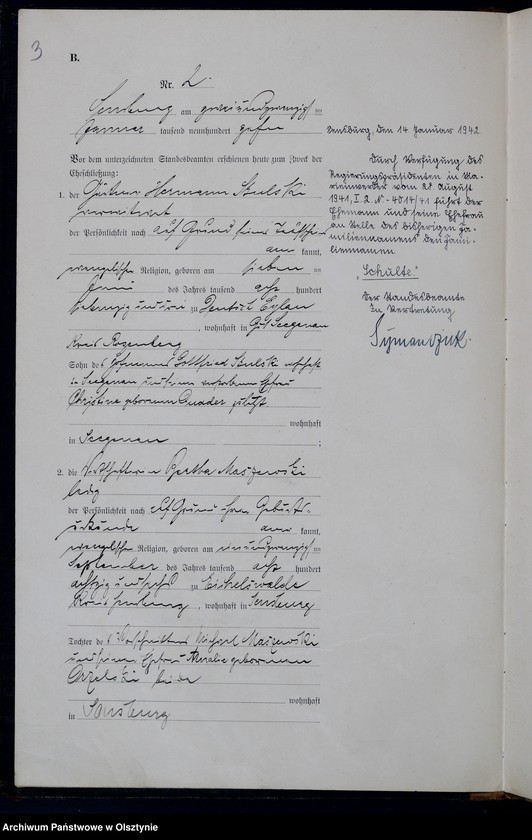 3
B.
Nr. 2.
Sensburg am zweiundzwanzigsten
Januar tausend neunhundert zehn
Vor dem unterzeichneten Standesbeamten erschienen heute zum Zweck der
Eheschließung:
1. der Gärtner Hermann Stulski
der Persönlichkeit nach auf Grund seines
kannt,
evangelischer Religion, geboren am sieben ten
Juni des Jahres tausend acht hundert
siebenzig und drei zu Deutsch Eylau
, wohnhaft in Gut Seegenau
Kreis Rosenberg
Sohn des Hofmanns Gottfried Stulski wohnhaft
in Seegenau und seiner verstorbenen Ehefrau
Christine geborenen zuletzt
wohnhaft
in Seegenau ;
2. die Wirthschafterin Bertha Maszewski
ledig
der Persönlichkeit nach auf Grund ihrer Geburts-
urkunde aner kannt,
evangelischer Religion, geboren am einundzwanzigsten
September des Jahres tausend acht hundert
achtzig und sechs zu Eichelswalde
Kreis Sensburg, wohnhaft in Sensburg
Tochter des Michael Maszewski
und seiner Ehefrau Amalie geborenen
beide
wohnhaft
in Sensburg
Sensburg, den 14. Januar 1942
Durch Verfügung des
Regierungspräsidenten in Ma-
rienwerder vom 28. August
1941, I. 2. N - 4014/41 führt der
Ehemann und seine Ehefrau
an Stelle des bisherigen Fa-
miliennamens den Fami-
liennamen
„Schulte.“
Der Standesbeamte
In Vertretung
Symanczik.
Archiwum Państwowe w Olsztynie